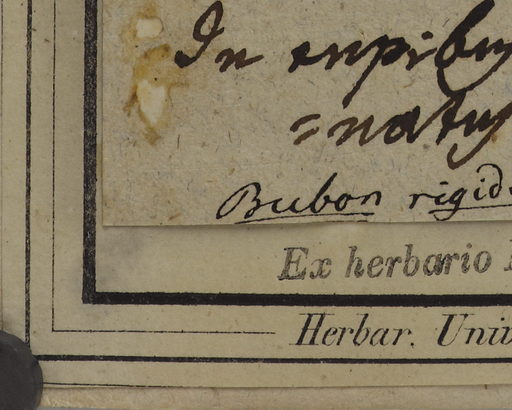 In rupibus
=natus
Bubon rigid
Ex herbario
Herbar. Univ